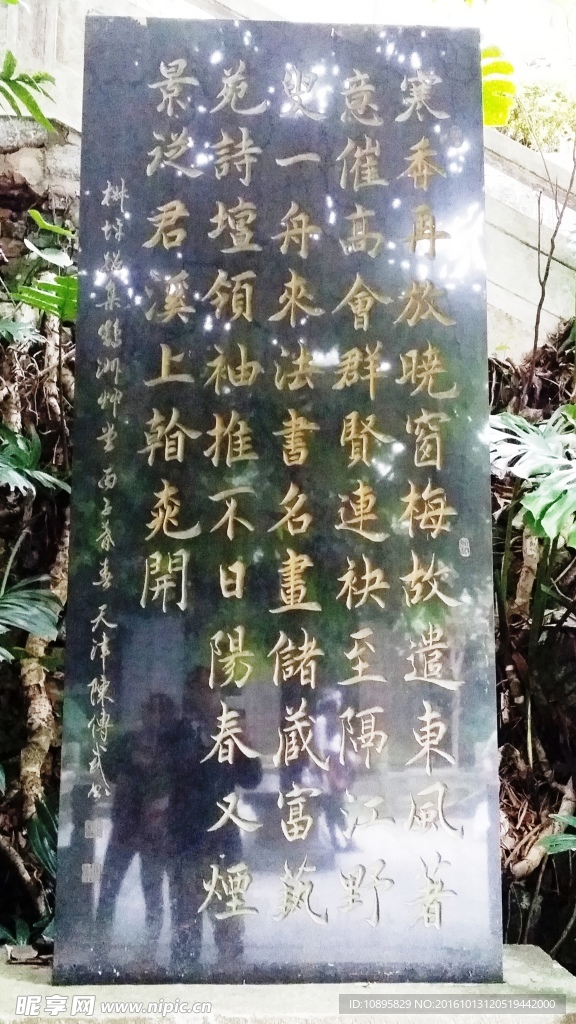 寒香再放曉窗梅故遣東風著
意催高會群賢連袂至隔江野
叟一舟來法書名畫儲藏富藝
苑詩壇領袖推不日陽春又煙
景從君溪上翰苑開
集 洲 坐雨 天津陳傳武
昵享网 www.nipic.cn
ID:10895829 NO:20161013120519442000